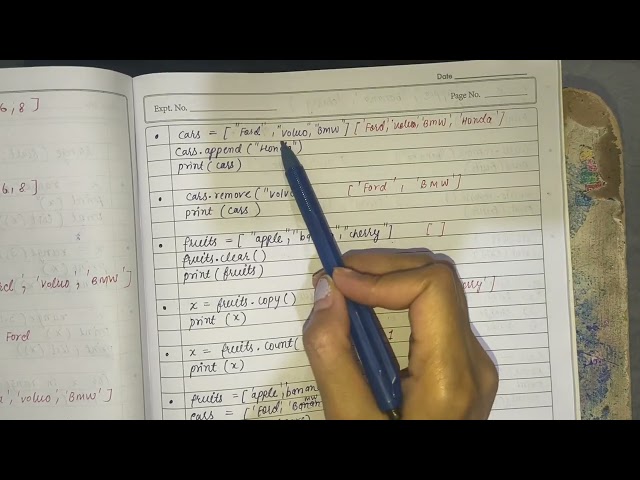 6,8 ]
6,8 ]
'volvo', 'BMW' ]
Ford
'volvo', 'BMW' ]
Date
Expt. No.
Page No.
• cars = [ "Ford", "volvo", "BMW" ] ['Ford', 'volvo', 'BMW', 'Honda' ]
cars.append( )
print (cars)
• cars.remove( ['Ford', 'BMW' ]
print (cars)
• fruits = [ "apple", "cherry" ] [ ]
fruits.clear()
print (fruits)
• x = fruits.copy ()
print (x)
• x = fruits.count( 1
print (x)
• fruits = ['apple',
cars = ['Ford',